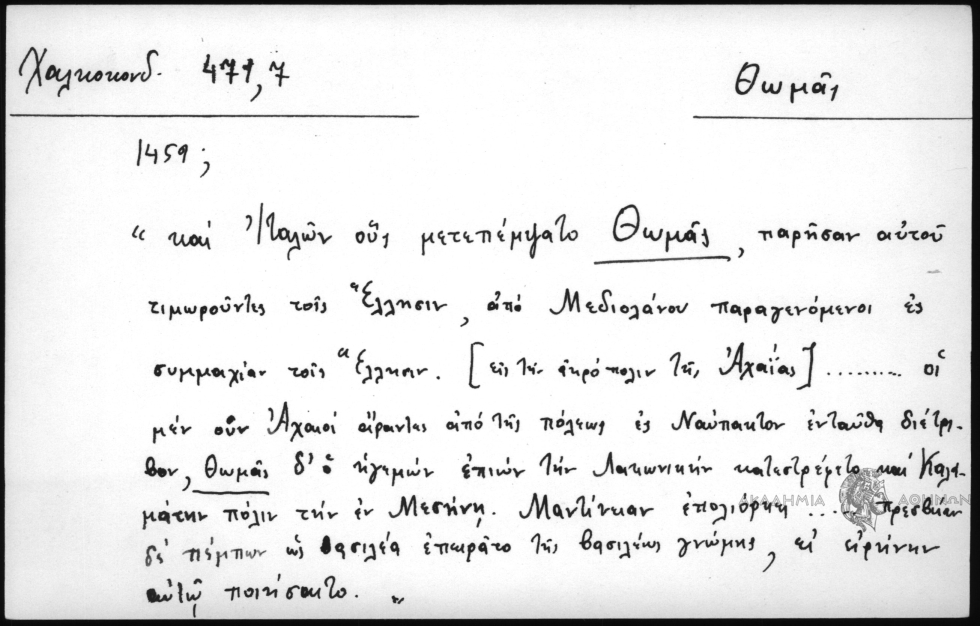 Χαλκοκονδ. 471,7
Θωμᾶς
1459;
“ καὶ Ἰταλῶν οὓς μετεπέμψατο Θωμᾶς, παρῆσαν αὐτοῦ
τιμωροῦντες τοῖς Ἕλλησιν, ἀπὸ Μεδιολάνου παραγενόμενοι ἐς
συμμαχίαν τοῖς Ἕλλησιν. [εἰς τὴν ἀκρόπολιν τῆς Ἀχαΐας] ......... οἱ
μὲν οὖν Ἀχαιοὶ ἄραντες ἀπὸ τῆς πόλεως ἐς Ναύπακτον ἐνταῦθα διέτρι-
βον, Θωμᾶς δ' ὁ ἡγεμὼν ἐπιὼν τὴν Λακωνικὴν κατεστρέφετο καὶ Καλα-
μάτην πόλιν τὴν ἐν Μεσήνῃ. Μαντίνειαν ἐπολιόρκει .... πρεσβείαν
δὲ πέμπων ὡς βασιλέα ἐπειρᾶτο τῆς βασιλέως γνώμης, εἰ εἰρήνην
αὐτῷ ποιήσαιτο. „
ΑΚΑΔΗΜΙΑ ΑΘΗΝΩΝ